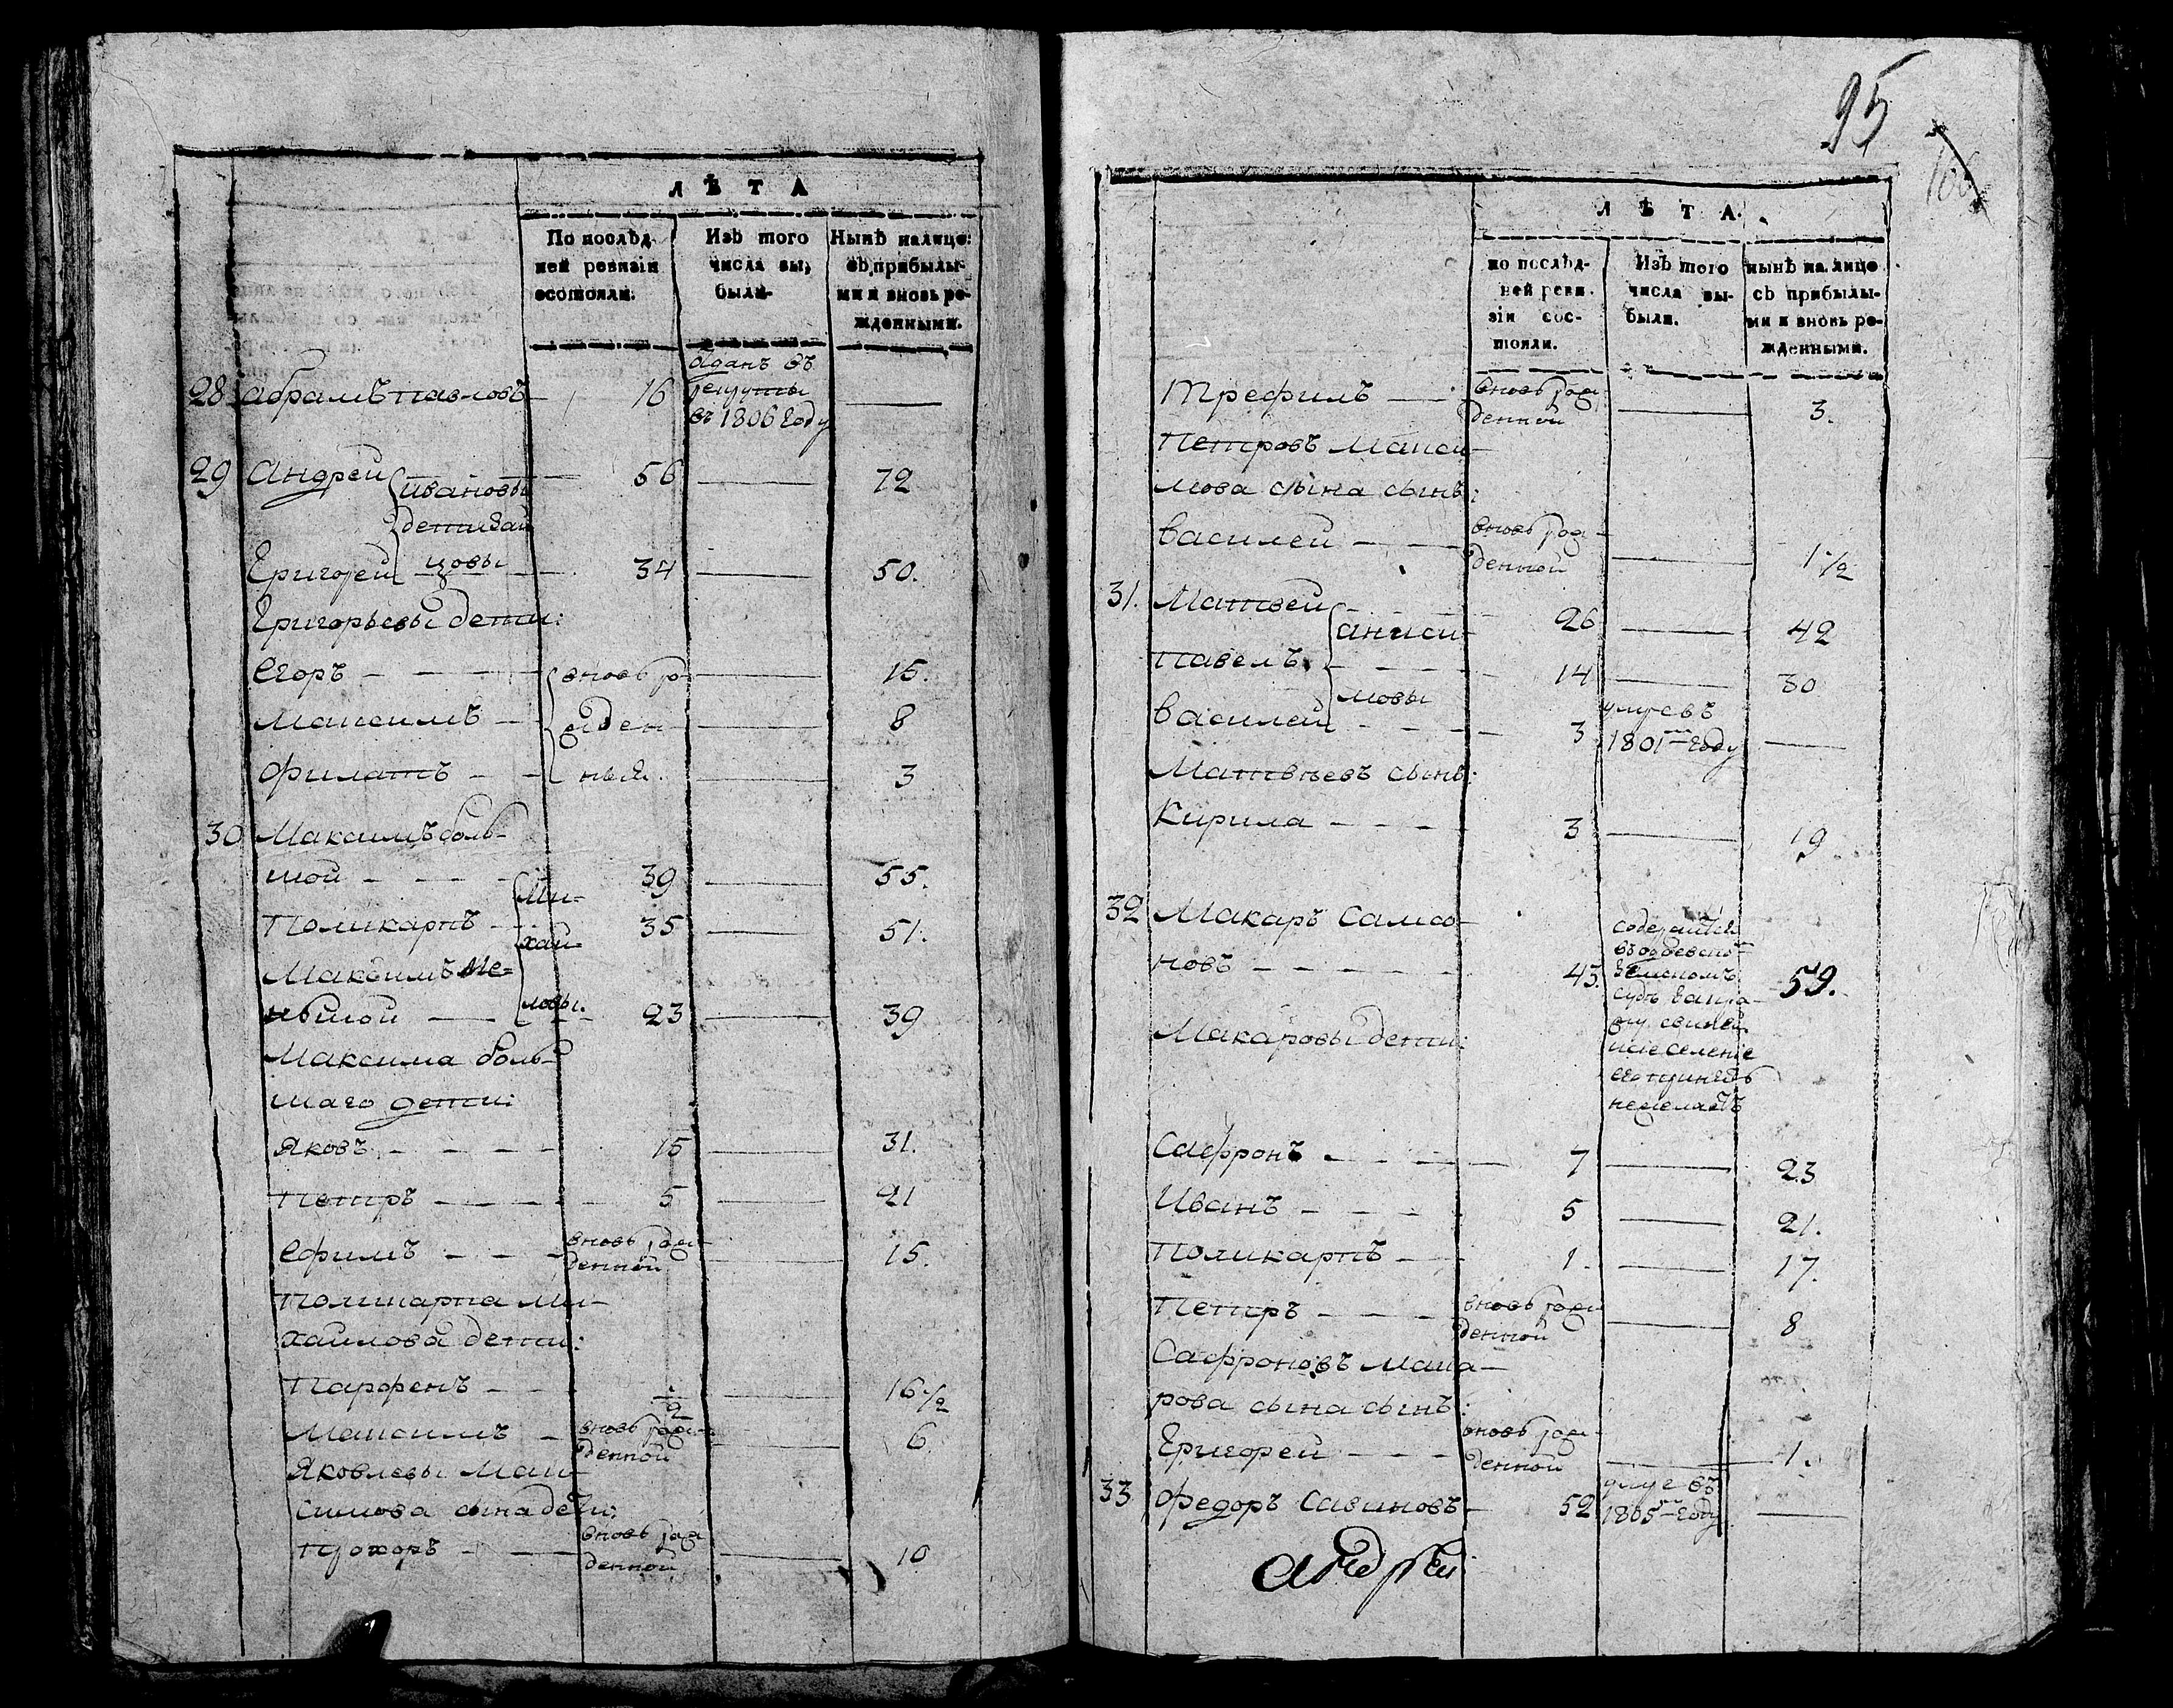 ЛѢТА
По послѣд-
ней ревизіи
состояли.
Изъ того
числа вы-
были.
Нынѣ на лицо
съ прибылы-
ми и вновь ро-
жденными.
28 Абрамъ Павловъ — 16 отданъ въ рекруты въ 1806 году —
29 Андрей { Ивановы — 56 — 72
дети Зай
Григорей цовы — 34 — 50.
Григорьевы дети:
Егоръ — { вновь ро — 15.
Максимъ — жден — 8
Филатъ — ныя. — 3
30 Максимъ боль-
шой — { Ми- 39 — 55.
Поликарпъ — хай- 35 — 51.
Максимъ Ме-
ньшой — ловы. 23 — 39
Максима боль-
шаго дети:
Яковъ — 15 — 31.
Петръ — 5 — 21
Ефимъ — вновь рож- — 15.
денной
Поликарпа Ми-
хайлова дети:
Парфенъ — 1/2 — 16 1/2
Максимъ — вновь рож- — 6
денной
Яковлевы Мак-
симова сына дети:
Прохоръ — вновь рож — 10
денной
95
ЛѢТА.
по послѣд-
ней реви-
зіи сос-
тояли.
Изъ того
числа вы-
были.
нынѣ на лицо
съ прибылы-
ми и вновь ро-
жденными.
Трефилъ — вновь рож — 3.
денной
Петровъ Макси-
мова сына сынъ:
Василей — вновь рож- — 1 1/2
денной
31. Матвей { — 26 — 42
Аниси-
Павелъ — 14 — 30
мовы
Василей — 3 умре въ 1801м году —
Матвѣевъ сынъ:
Кирила — 3 — 19
32 Макаръ Самсо-
новъ — 43. 59.
содержится
въ
Земскомъ
суде за кра-
жу свиней
и селеніе
его принять
нежелаетъ
Макаровы дети:
Сафронъ — 7 — 23
Иванъ — 5 — 21.
Поликарпъ — 1. — 17.
Петръ — вновь рож- — 8
денной
Сафроновъ Мака-
рова сына сынъ:
Григорей — вновь рож- — 1.
денной
33 Федоръ Савиновъ — 52 умре въ 1805м году —
Андрей